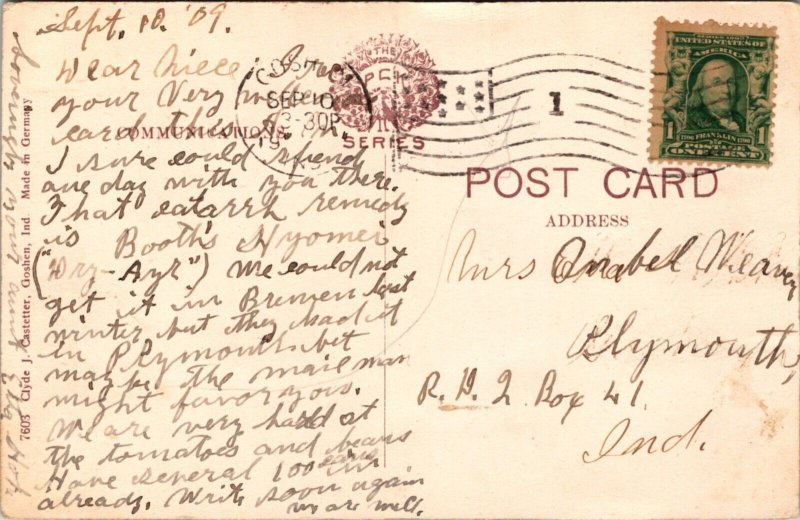 Sept. 10. '09.
Dear Niece
your very
card this
I sure could spend
one day with you there.
That catarrh remedy
is Booth's Hyomei
("Dry-Ayr") We could not
get it in Bremen last
winter but they had it
in Plymouth. bet
maybe the mail man
might favor you.
We are very hard at
the tomatoes and beans
Have several 100 cans in
already. Write soon again
we are well.
COMMUNICATION
THE
PCK
SERIES
SEP 10
3-30P
1
SERIES 1902
UNITED STATES OF
AMERICA
1706 FRANKLIN 1790
1 1
POSTAGE
ONE CENT
POST CARD
ADDRESS
Mrs Anabel Weaver
Plymouth,
R. D. 2 Box 41
Ind.
7603 Clyde J. Castetter, Goshen, Ind Made in Germany
your aunt